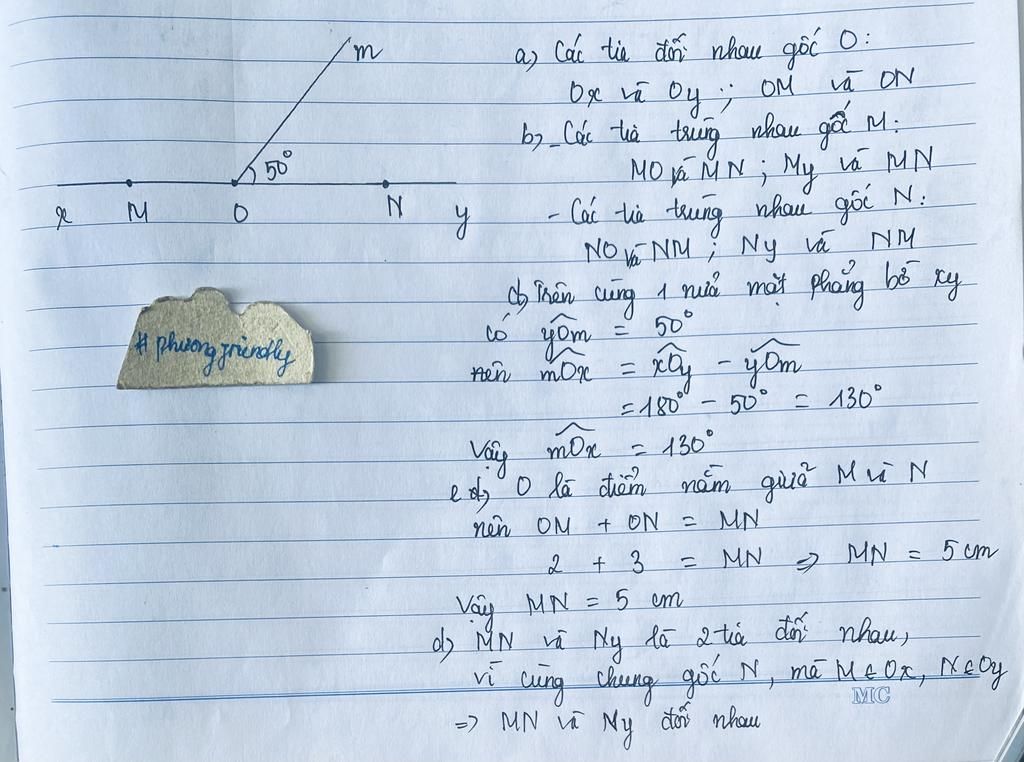 m
50°
x M O N y
#phuongfriendly
a) Các tia đối nhau gốc O:
Ox và Oy ; OM và ON
b) - Các tia trùng nhau gốc M:
MO và MN ; My và MN
- Các tia trùng nhau gốc N:
NO và NM ; Ny và NM
c) Trên cùng 1 nửa mặt phẳng bờ xy
có yOm = 50°
nên mOx = xOy - yOm
= 180° - 50° = 130°
Vậy mOx = 130°
e d) O là điểm nằm giữa M và N
nên OM + ON = MN
2 + 3 = MN => MN = 5 cm
Vậy MN = 5 cm
d) MN và Ny là 2 tia đối nhau,
vì cùng chung gốc N, mà M ∈ Ox, N ∈ Oy
MC
=> MN và Ny đối nhau